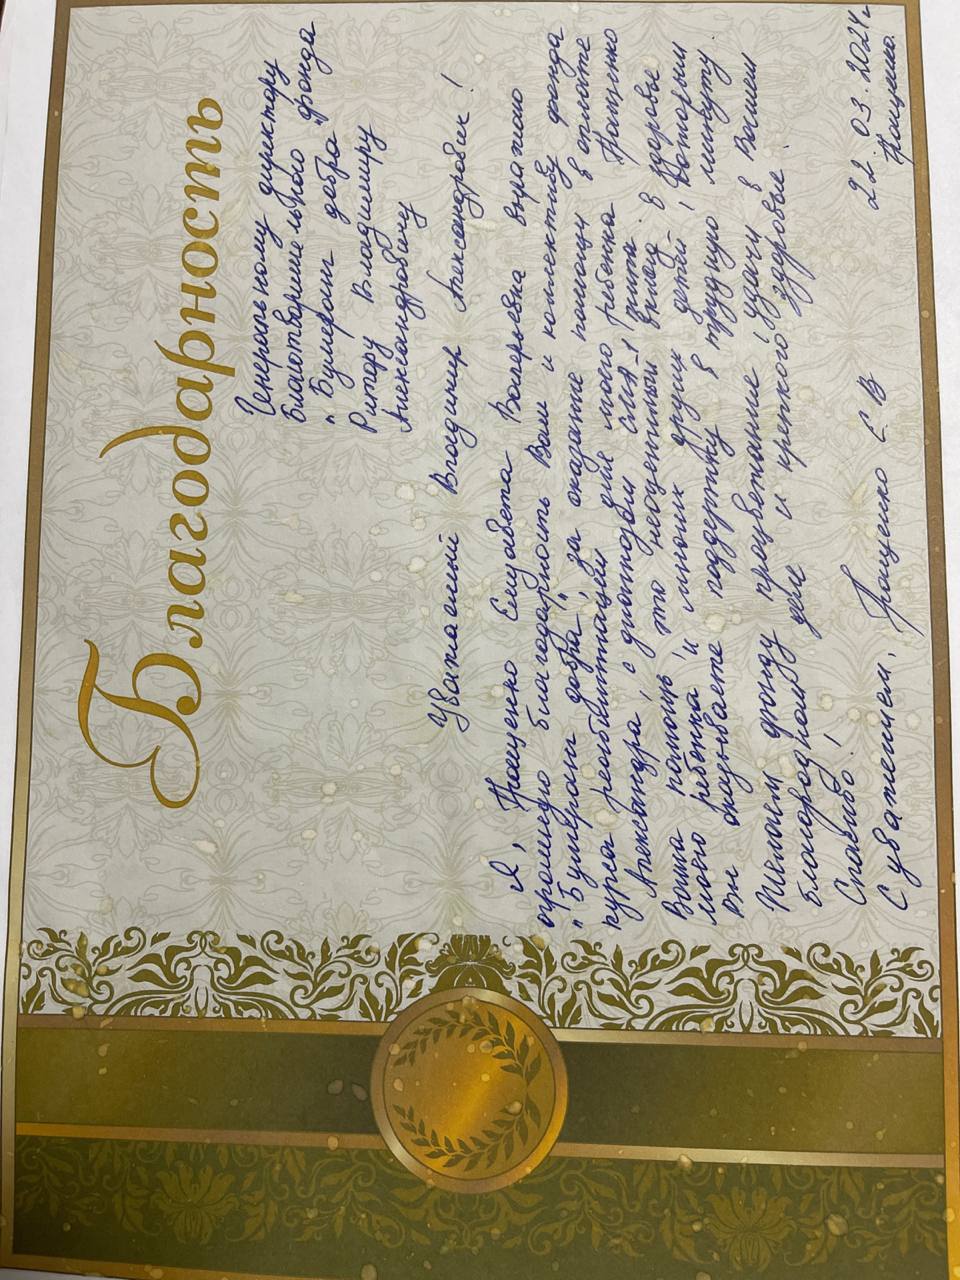 Благодарность
Генеральному директору
Благотворительного фонда
"Бумеранг добра"
Ритору Владимиру
Александровичу
Уважаемый Владимир Александрович!
Я, Елизавета Валерьевна выражаю
огромную благодарность Вам и коллективу фонда
"Бумеранг добра", за оказание помощи в оплате
курса реабилитации для моего ребенка
Александра, с диагнозом СМА 1 типа.
Ваша помощь это неоценимый вклад в здоровье
моего ребенка и многих других детей, которым
вы оказываете поддержку в трудную минуту.
Желаем фонду процветание, удачу в Вашем
благородном деле и крепкого здоровья.
Спасибо!
С уважением, 22.03.2024г